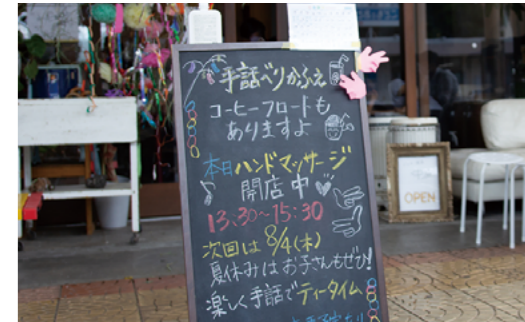 手話べりかふぇ
コーヒーフロートも
ありますよ
本日ハンドマッサージ
開店中
13:30~15:30
次回は8/4(木)
夏休みはお子さんもぜひ!
楽しく手話でティータイム
OPEN